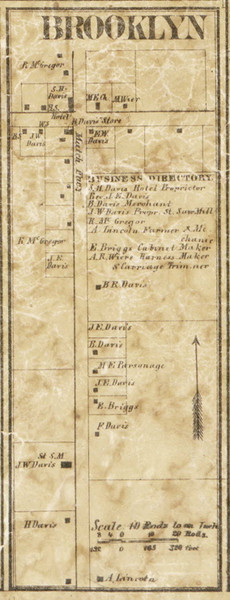 BROOKLYN
R. McGregor
S.H.
Davis
M.E.Ch.
M Wier
B.S.
Hotel
W.S.
B Davis' Store
B.S.
J.W
Davis
R.W.
Davis
Main
BUSINESS DIRECTORY.
S.H. Davis Hotel Proprietor
Rev J.E. Davis
B. Davis Merchant
J.W Davis Propr. St. Saw Mill
R. McGregor
A Lincoln Farmer & Me
chanic
E. Briggs Cabinet Maker
A.R. Wiers Harness Maker
& Carriage Trimmer
R McGregor
J.E.
Davis
B R. Davis
J.E. Davis
B. Davis
M E Parsonage
J.E. Davis
E. Briggs
F. Davis
St S.M
J.W Davis
H Davis
Scale 40 Rods to an Inch
20 Rods.
165 330 feet
A Lincoln